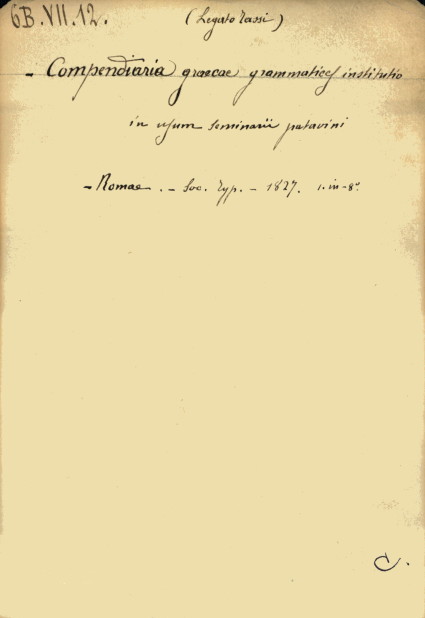 6B.VII.12. (Legato Tassi)
- Compendiaria graecae grammatices institutio
in usum seminarii patavini
- Romae. - Soc. Typ. - 1827. 1. in-8º
C.